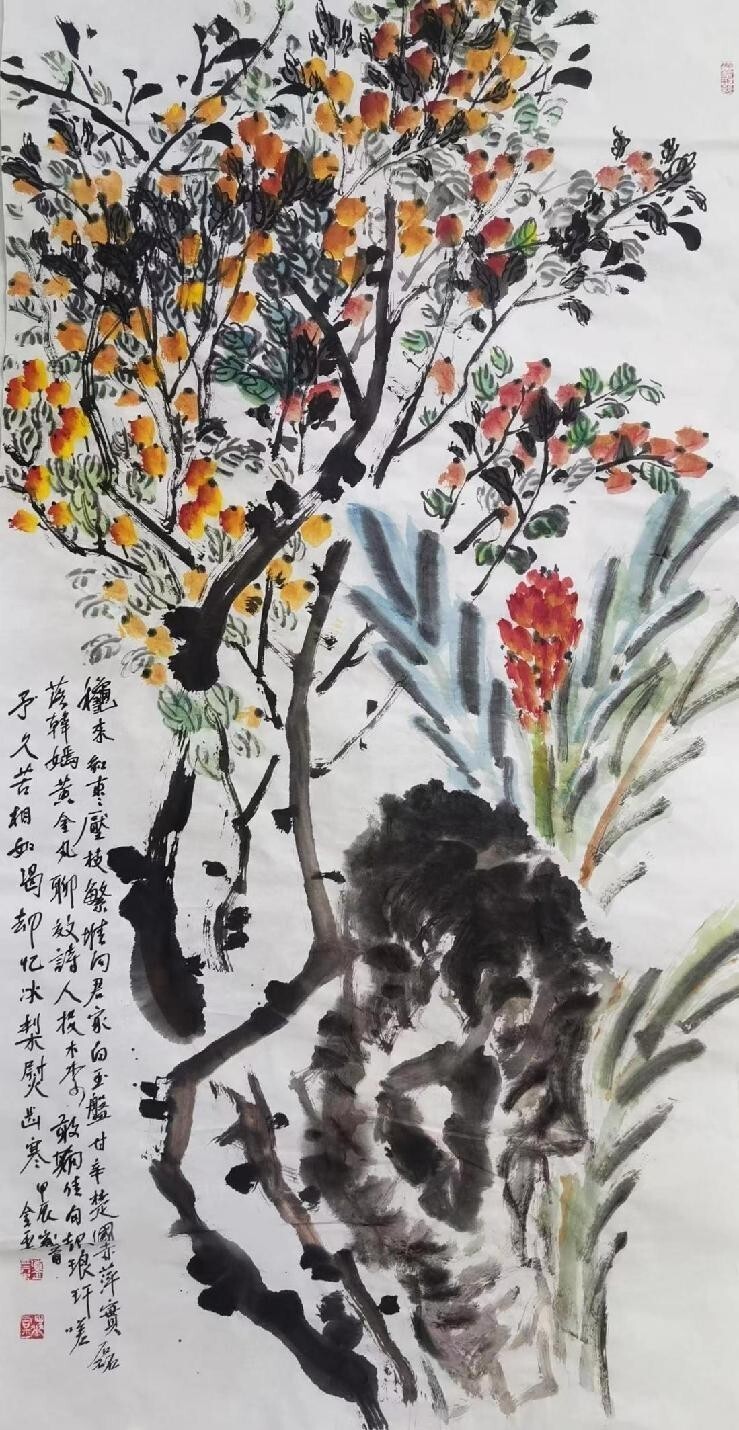 龝来紅枣壓枝繁堆向君家白玉盤甘辛楚國赤萍實磊
落韓嫣黄金丸聊效詩人投木李敢期佳句報琅玕嗟
予久苦相如渴却忆冰梨熨齒寒 甲辰歲首